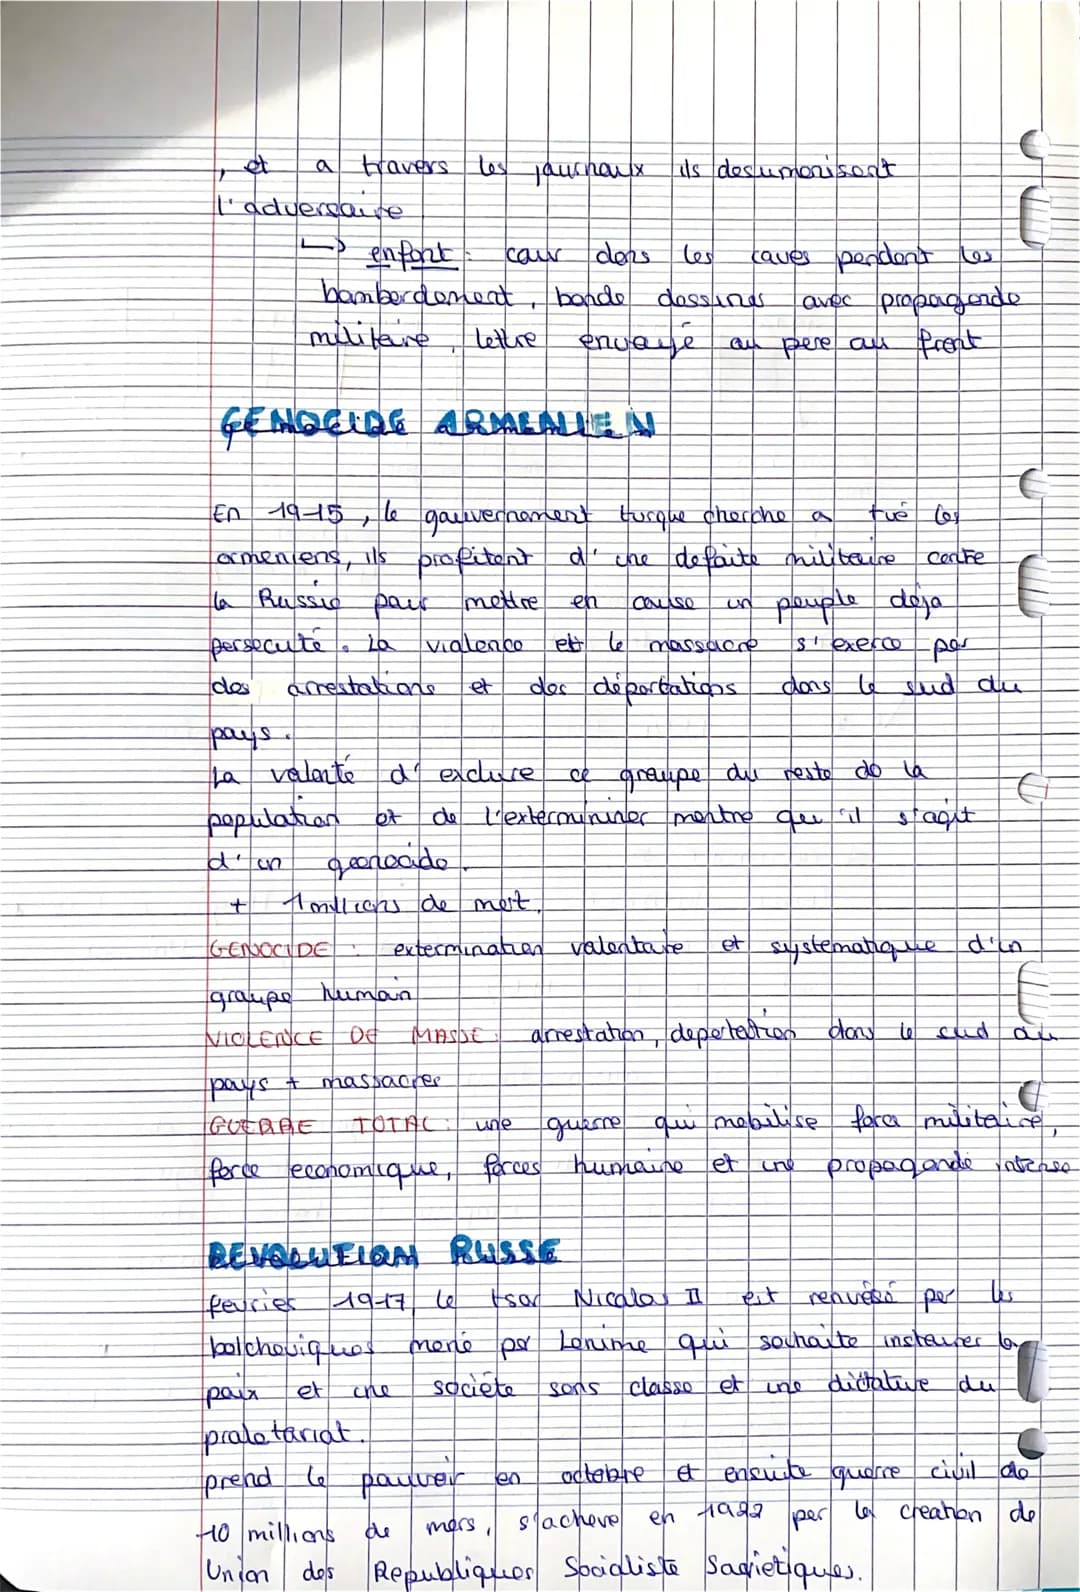 , et a travers les journaux ils desumonisent
l'adversaire
↳ enfant : cour dans les caves pendant les
bamberdement, bande dessinés avec propagande
militaire, lettre envoyé au pere au front
GENOCIDE ARMENIEN
En 1915, le gouvernement turque cherche a tué les
armeniens, ils profitent d'une defaite militaire contre
la Russie pour mettre en cause un peuple deja
persecuté. La violence et le massacre s'exerce par
des arrestations et des déportations dans le sud du
pays.
La volonté d'exclure ce groupe du reste de la
population et de l'extermininer montre qu'il s'agit
d'un geonocide.
+ 1 millions de mort.
GENOCIDE : extermination volontaire et systematique d'un
groupe humain
VIOLENCE DE MASSE : arrestation, deportation dans le sud du
pays + massacrer
GUERRE TOTAL : une guerre qui mobilise force militaire,
force economique, forces humaine et une propagande intense
REVOLUTION RUSSE
fevrier 1917, le tsar Nicolas II est renversé par les
bolcheviques mené par Lenime qui souhaite instaurer la
paix et une societe sans classe et une dictature du
proletariat.
prend le pouvoir en octobre et ensuite guerre civil de
10 millions de mors, s'acheve en 1922 par la creation de
Union des Republiques Socialiste Sovietiques.